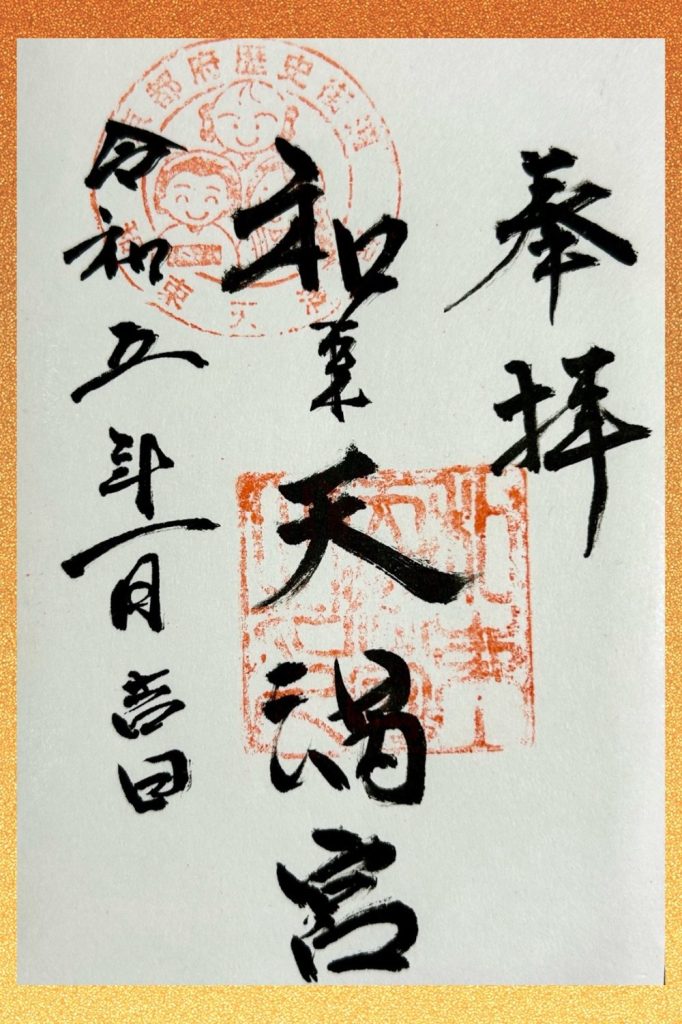 奉拝
和束天満宮
令和五年一月吉日
京都府歴史街道